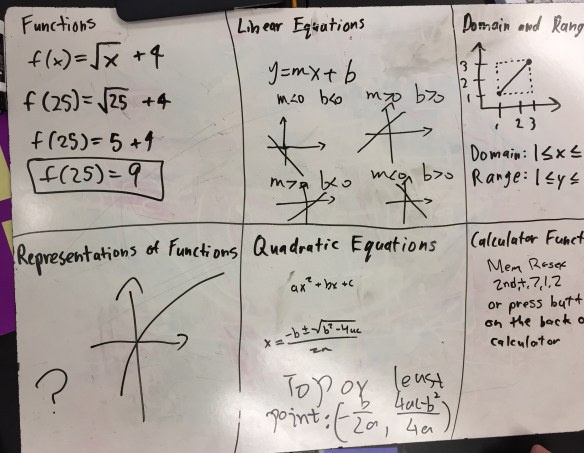 Functions
f(x)=√x +4
f(25)=√25 +4
f(25)=5+4
f(25)=9
Linear Equations
y=mx+b
m<0 b<0
m>0 b>0
m>0 b<0
m<0 b>0
Domain and Rang
3
2
1
1 2 3
Domain: 1≤x≤
Range: 1≤y≤
Representations of Functions
?
Quadratic Equations
ax²+bx+c
x= -b±√b²-4ac / 2a
Top or least
point: (-b/2a, 4ac-b²/4a)
Calculator Funct
Mem Reset
2nd,+,7,1,2
or press butt
on the back o
calculator